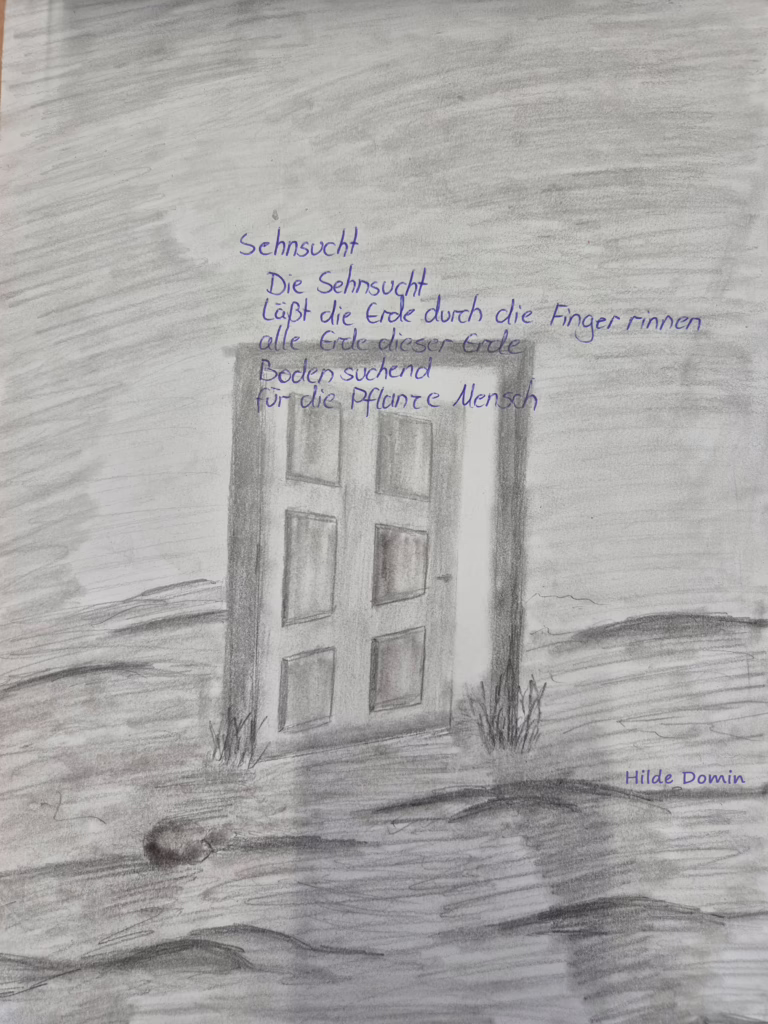 Sehnsucht
Die Sehnsucht
Läßt die Erde durch die Finger rinnen
alle Erde dieser Erde
Boden suchend
für die Pflanze Mensch
Hilde Domin